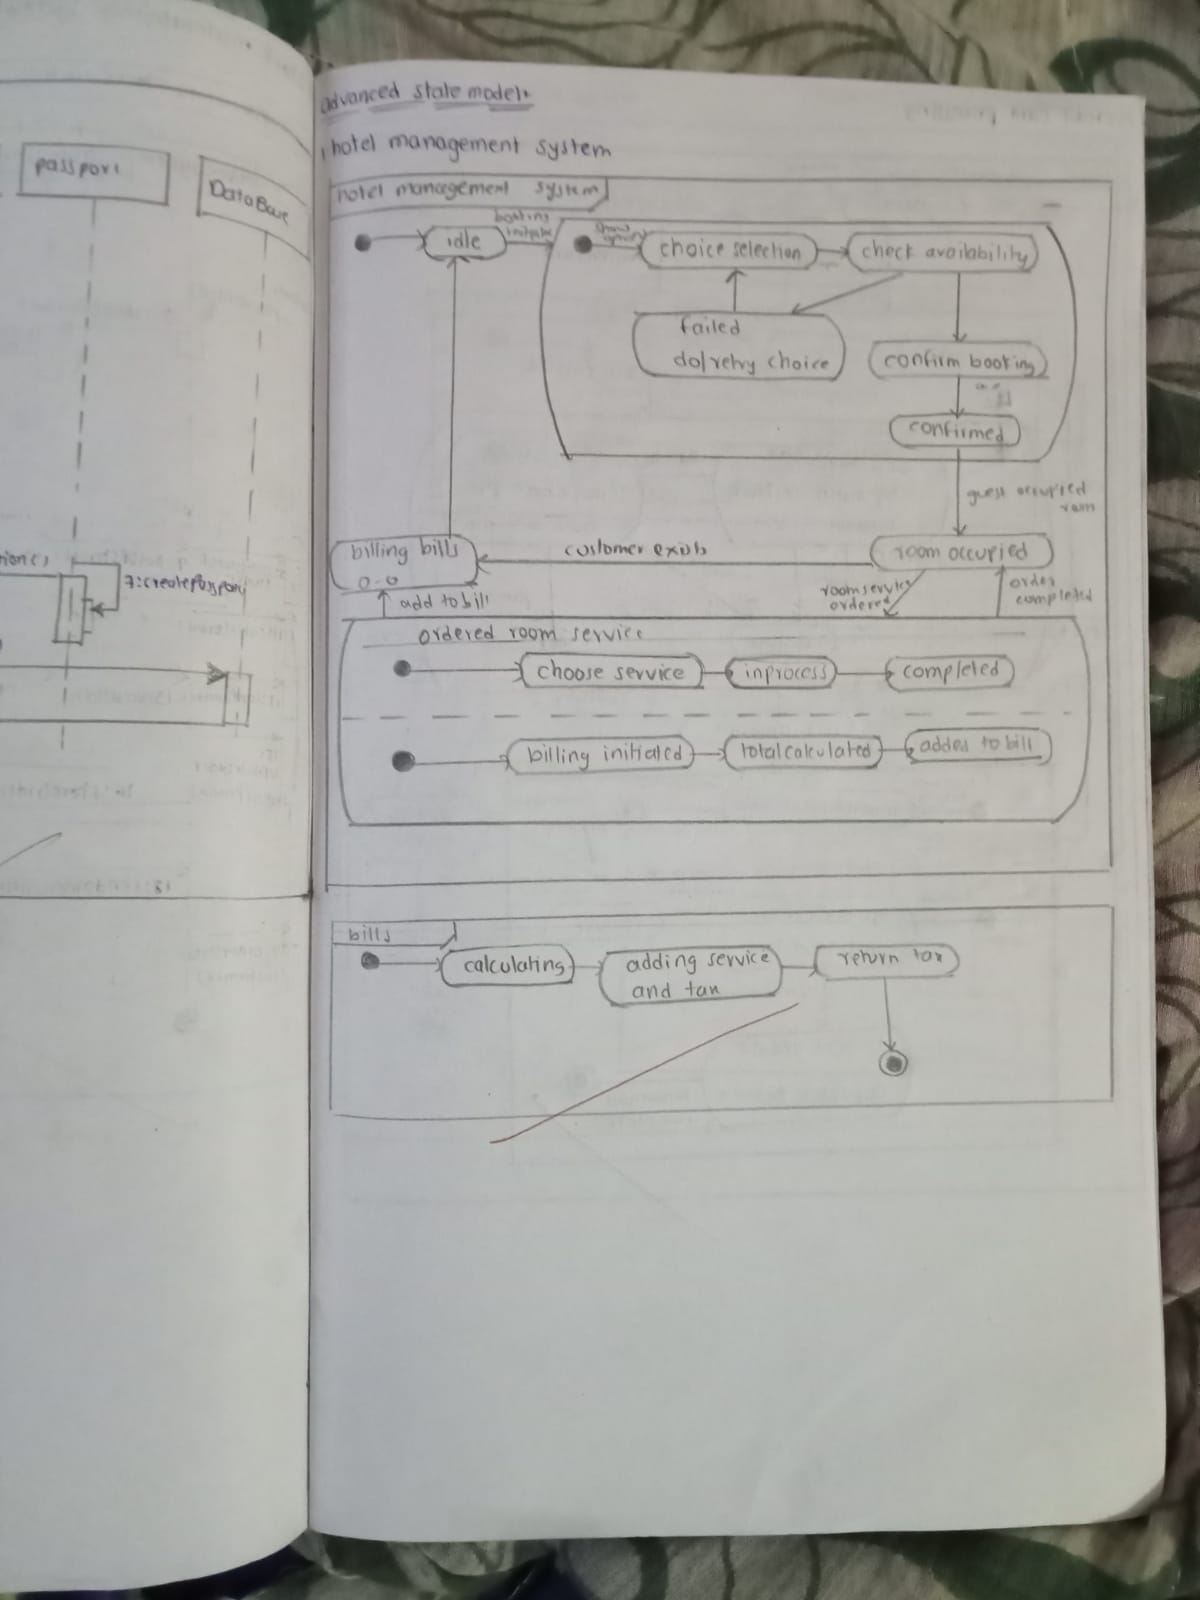 passport
DataBase
7:createPassport
advanced state model:
hotel management system
hotel management system
booking
initiate
idle
choice selection
check availability
failed
do/retry choice
confirm booking
confirmed
guest occupied
room
billing bills
customer exists
room occupied
add to bill
room service
ordered
order
completed
ordered room service
choose service
inprocess
completed
billing initiated
total calculated
added to bill
bills
calculating
adding service
and tax
return tax